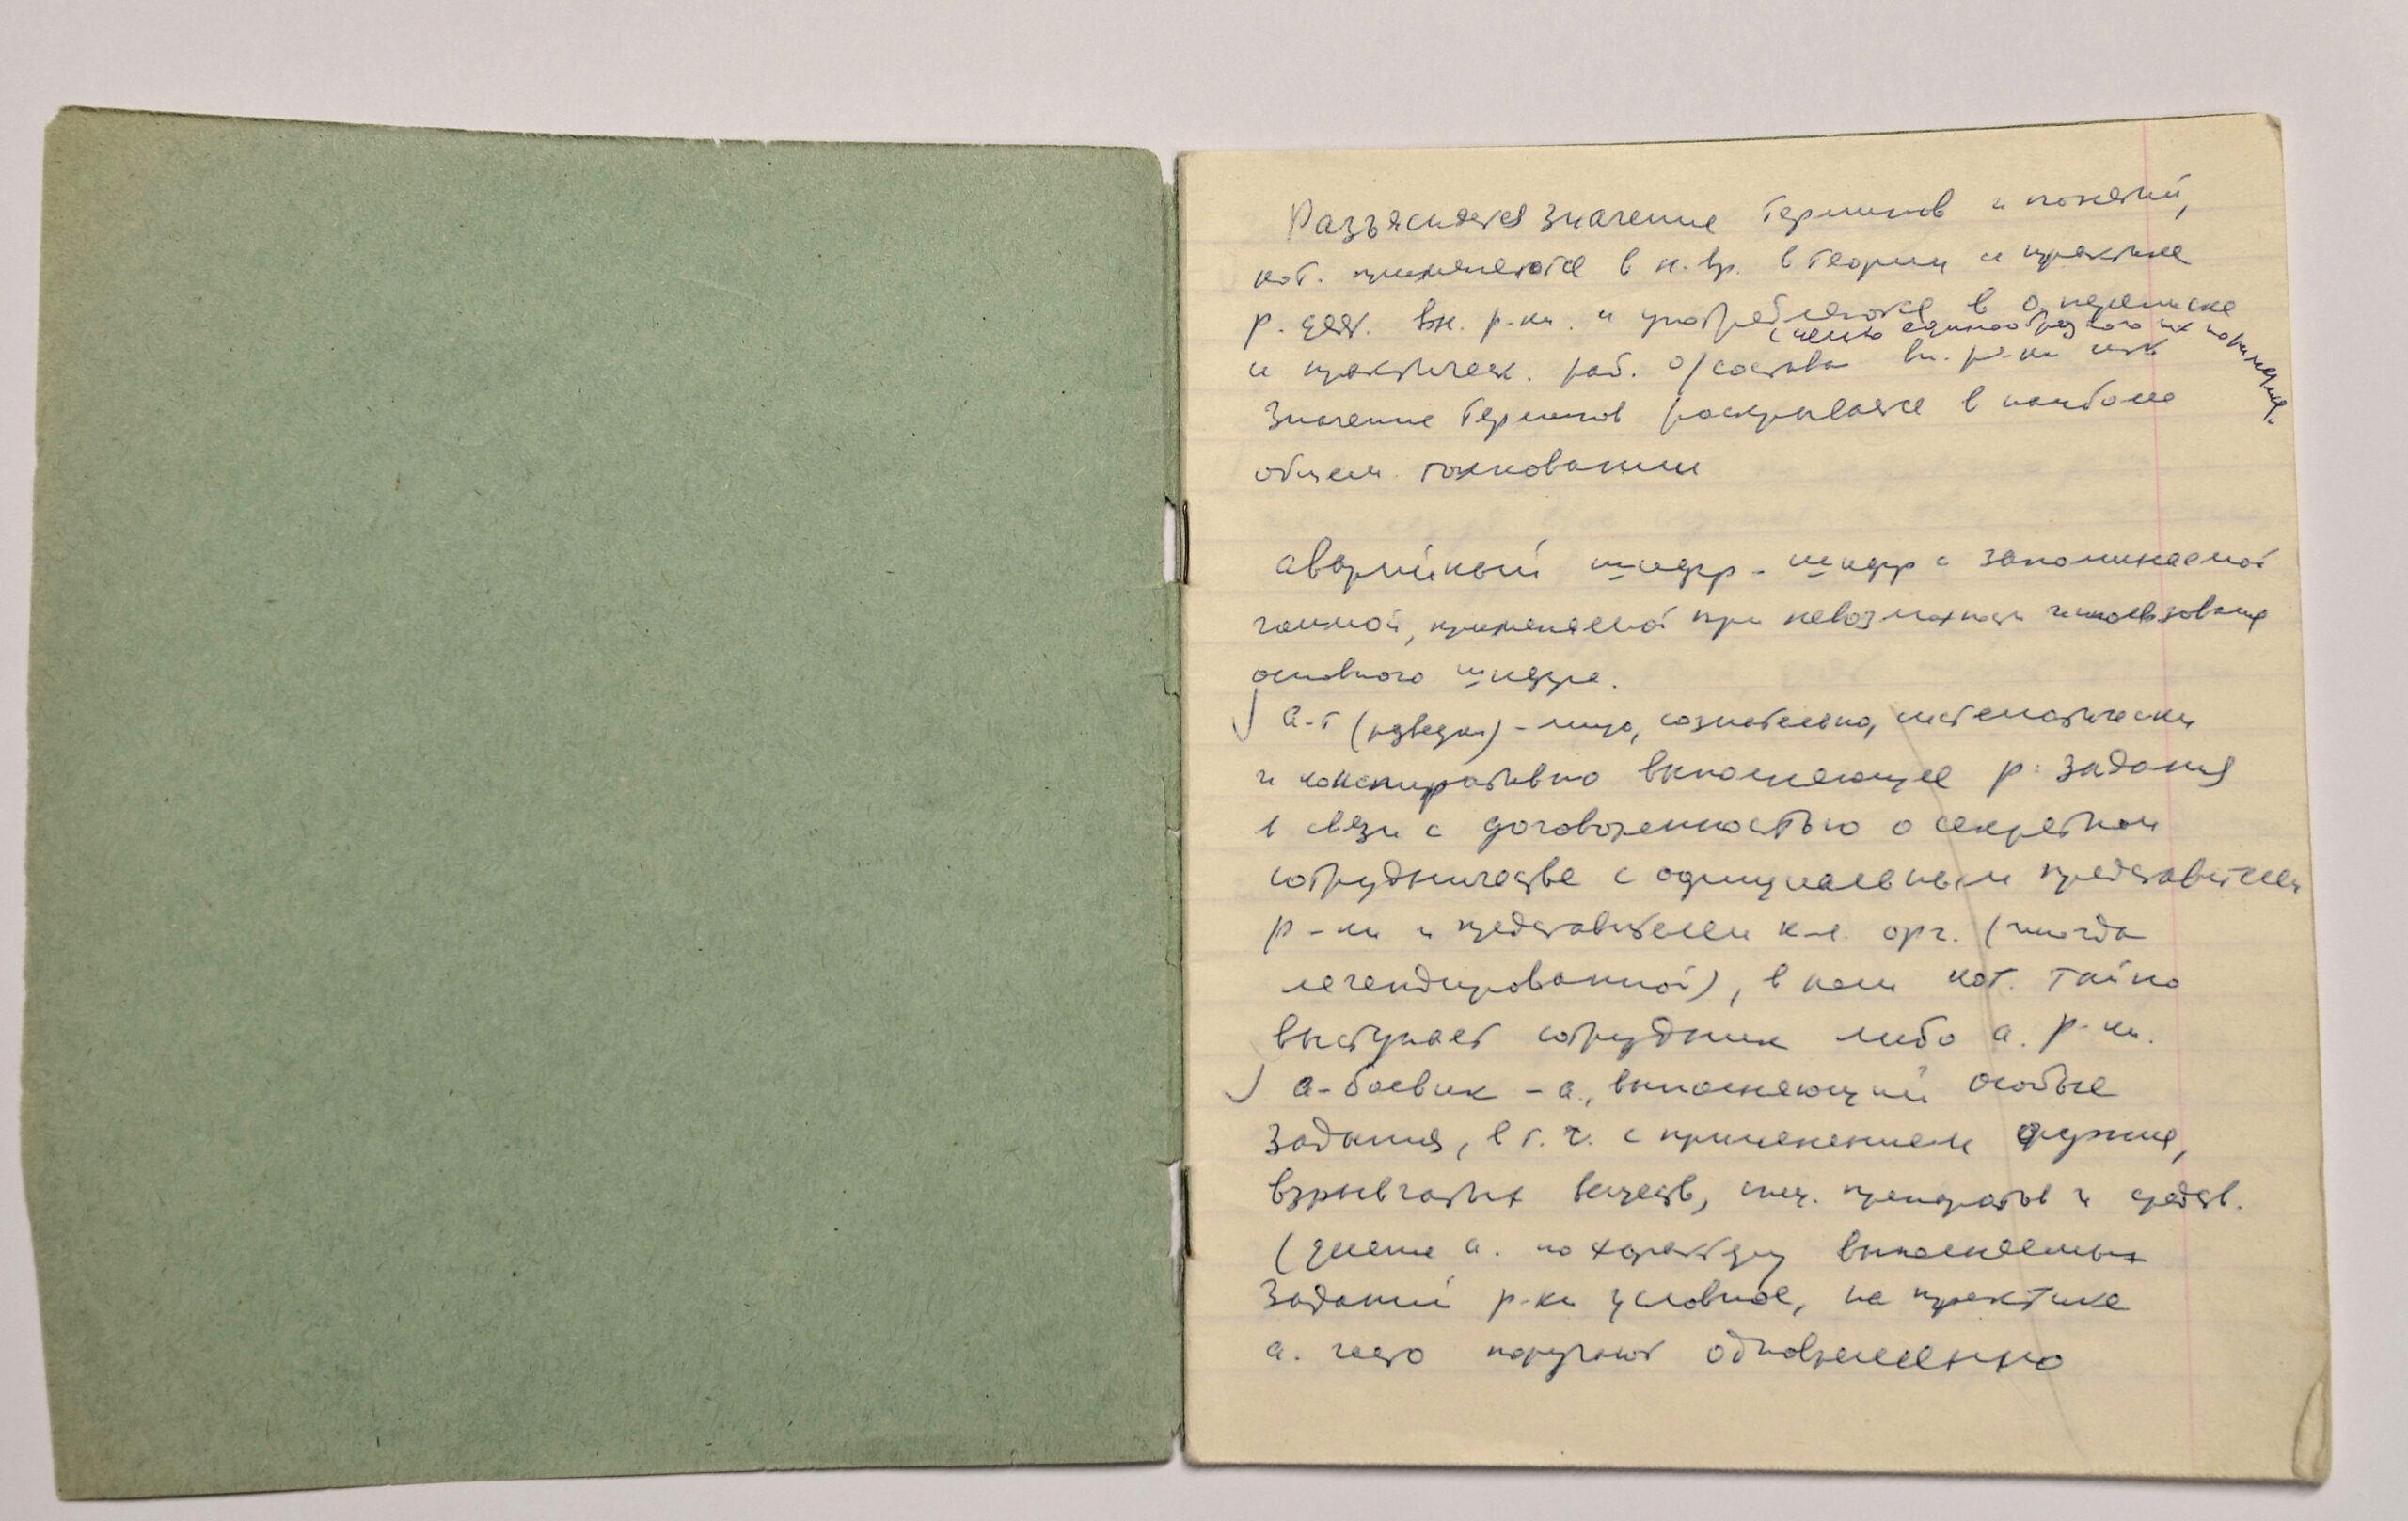 Разъясняется значение терминов и понятий,
кот. применяются в н. вр. в теории и практике
р. деят. вн. р-ки. и употребляются в о, переписке
с целью единообразного их понимания.
и практическ. раб. о/состава вн. р-ки
Значение терминов раскрывается в наиболее
общем. толковании
аварийный шифр - шифр с запоминаемой
гаммой, применяемой при невозможности использования
основного шифра.
а-т (разведки) - лицо, сознательно, систематически
и конспиративно выполняющее р. задания
в связи с договоренностью о секретном
сотрудничестве с официальным представителем
р-ки и представителем к-л. орг. (иногда
легендированной), в кач. кот. тайно
выступает сотрудник либо а. р-ки.
а-боевик - а., выполняющий особые
задания, в т. ч. с применением оружия,
взрывчатых веществ, спец. препаратов и средств.
(деление а. по характеру выполняемых
заданий р-ки условное, на практике
а. часто поручают одновременно